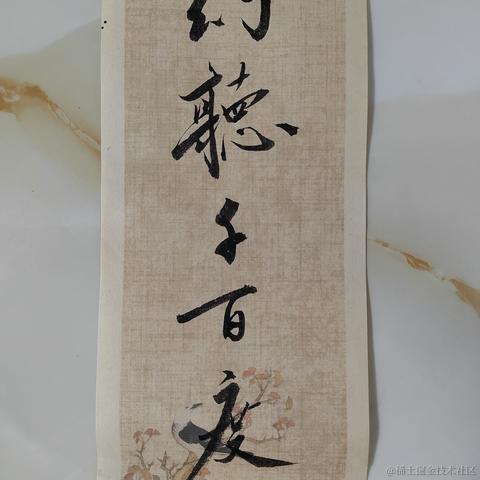 聽千百度
@稀土掘金技术社区